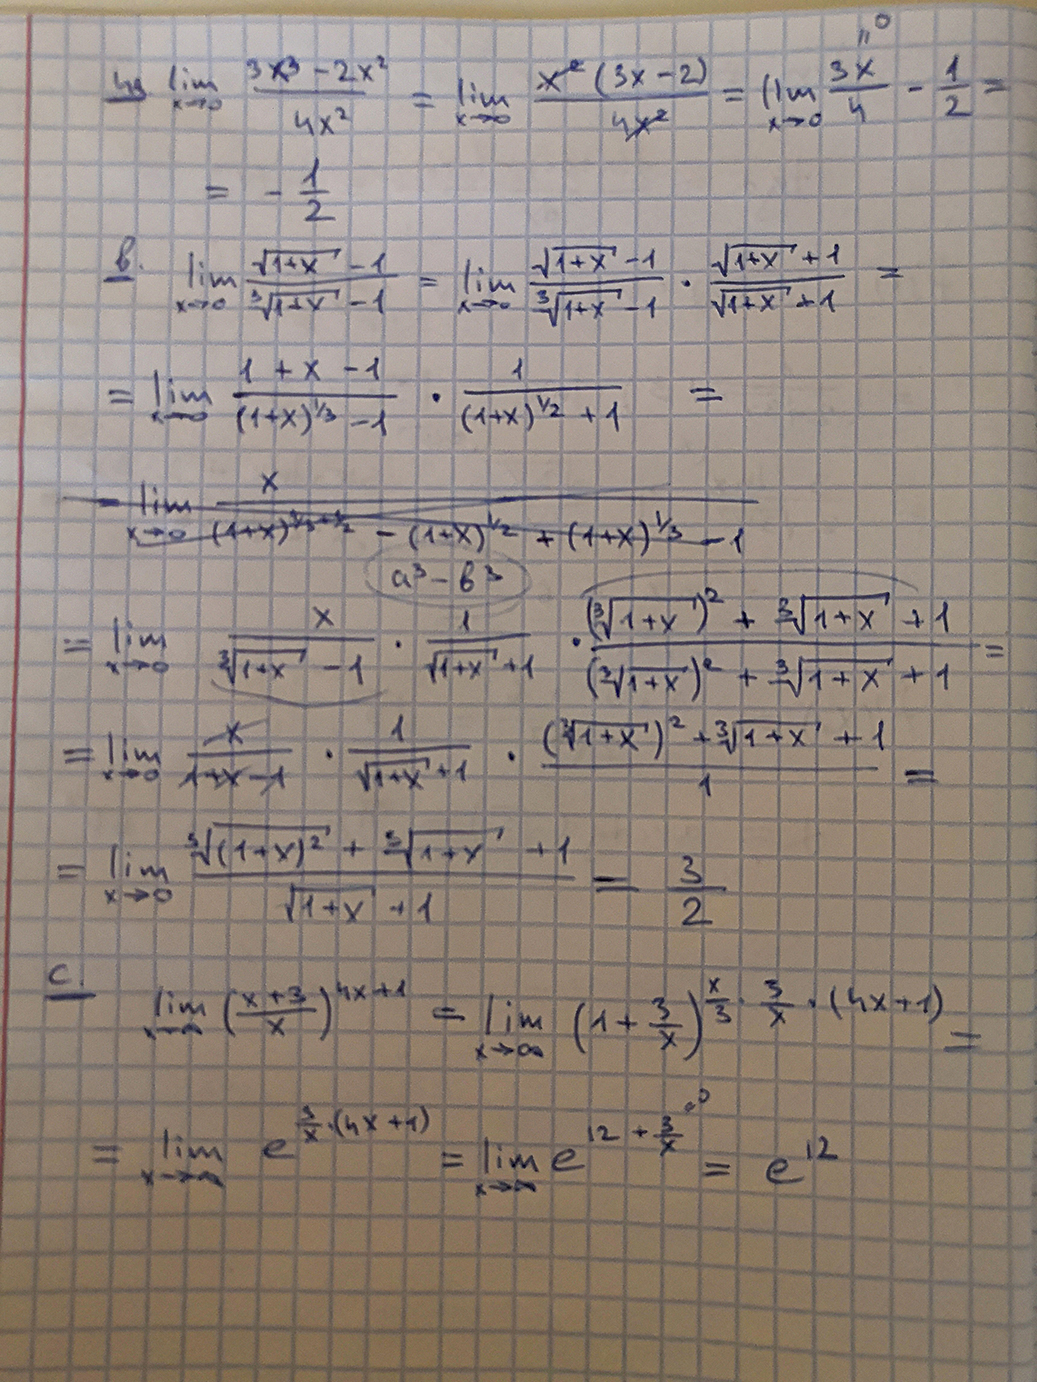 lim x→0 (3x³ - 2x²)/(4x²) = lim x→0 x²(3x - 2)/(4x²) = lim x→0 3x/4 - 1/2 =
"0
= - 1/2
b. lim x→0 (√(1+x) - 1)/(³√(1+x) - 1) = lim x→0 (√(1+x) - 1)/(³√(1+x) - 1) · (√(1+x) + 1)/(√(1+x) + 1) =
= lim x→0 (1 + x - 1)/((1+x)^(1/3) - 1) · 1/((1+x)^(1/2) + 1) =
- lim x→0 x/((1+x)^(1/3+1/2) - (1+x)^(1/2) + (1+x)^(1/3) - 1)
a³ - b³
= lim x→0 x/(³√(1+x) - 1) · 1/(√(1+x) + 1) · ((³√(1+x))² + ³√(1+x) + 1)/((³√(1+x))² + ³√(1+x) + 1) =
= lim x→0 x/(1+x-1) · 1/(√(1+x) + 1) · ((³√(1+x))² + ³√(1+x) + 1)/1 =
= lim x→0 (³√((1+x)²) + ³√(1+x) + 1)/(√(1+x) + 1) = 3/2
c. lim x→∞ ((x+3)/x)^(4x+1) = lim x→∞ (1 + 3/x)^(x/3 · 3/x · (4x+1)) =
= lim x→∞ e^(3/x · (4x+1)) = lim x→∞ e^(12 + 3/x) = e^12
"0